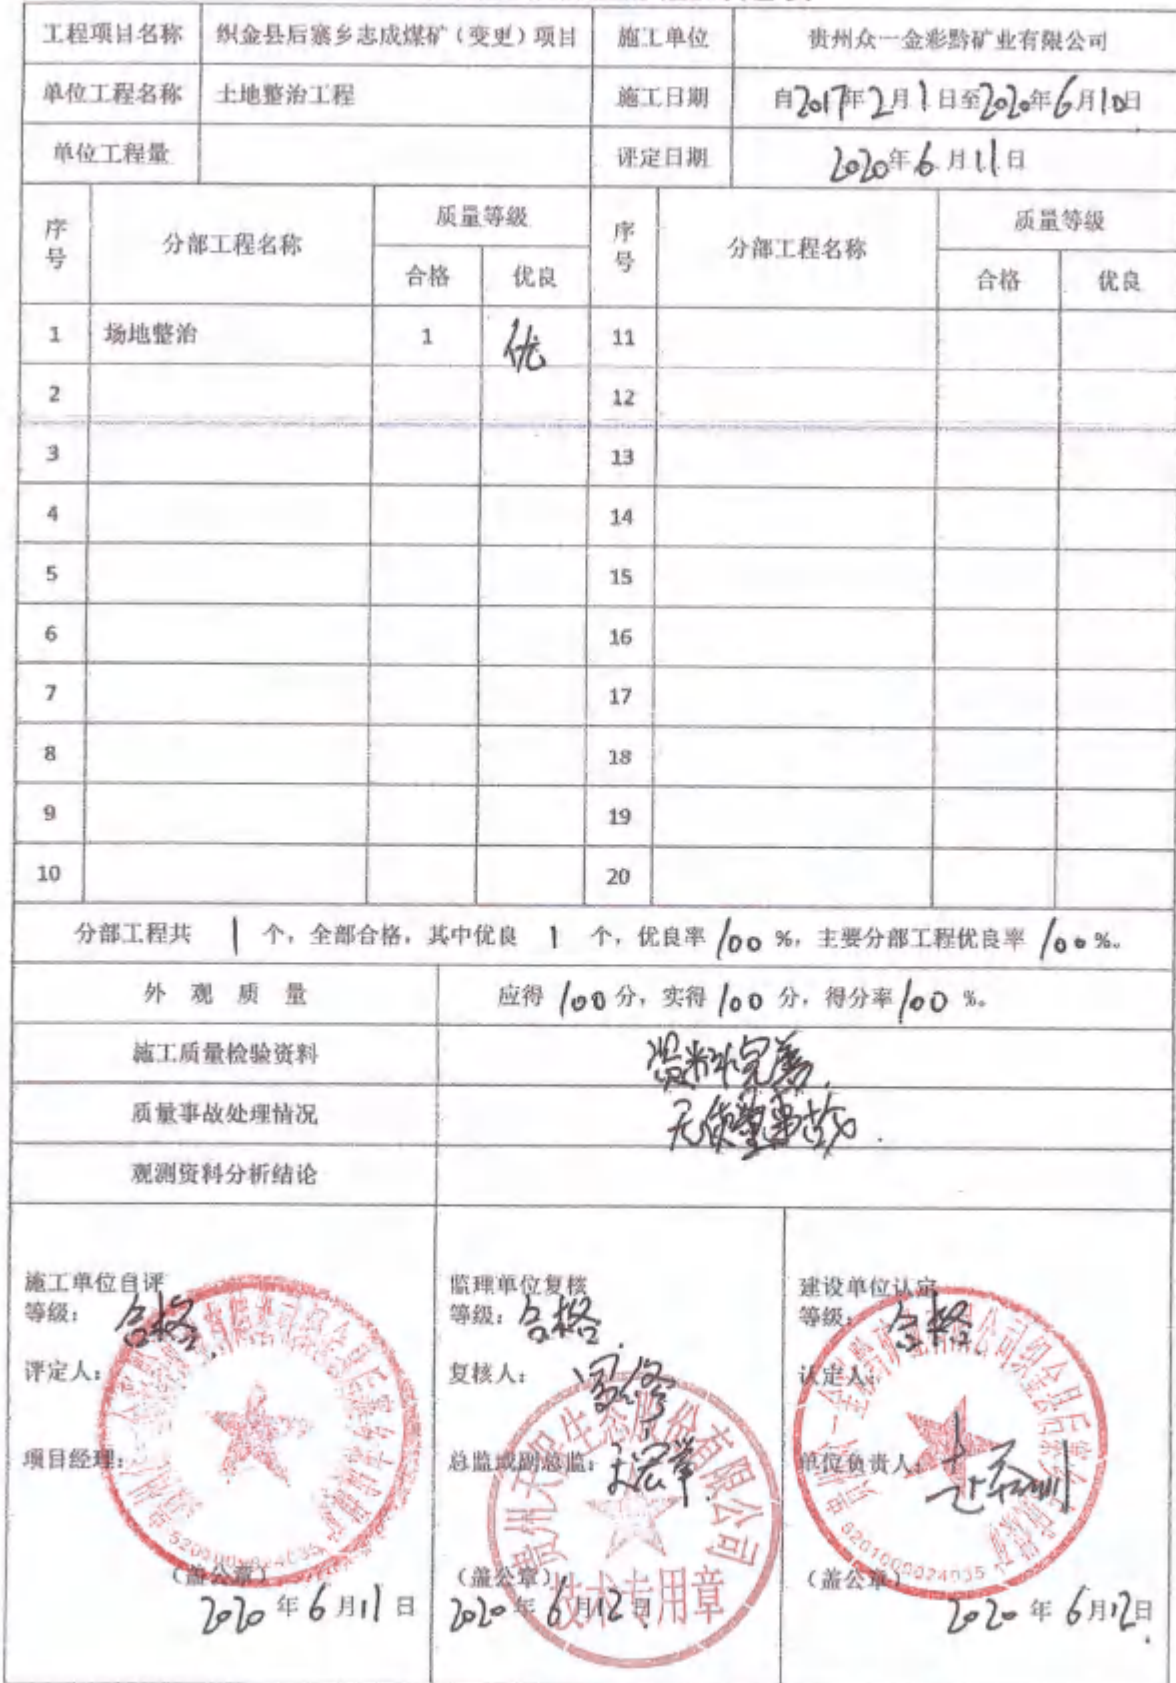 工程项目名称 织金县后寨乡志成煤矿（变更）项目 施工单位 贵州众一金彩黔矿业有限公司
单位工程名称 土地整治工程 施工日期 自2017年2月1日至2020年6月10日
单位工程量 评定日期 2020年6月11日
序号 分部工程名称 质量等级 序号 分部工程名称 质量等级
合格 优良 合格 优良
1 场地整治 1 优 11
2 12
3 13
4 14
5 15
6 16
7 17
8 18
9 19
10 20
分部工程共 1 个，全部合格，其中优良 1 个，优良率 100 %，主要分部工程优良率 100 %。
外观质量 应得 100 分，实得 100 分，得分率 100 %。
施工质量检验资料 资料完善
质量事故处理情况 无质量事故.
观测资料分析结论
施工单位自评
等级：合格
评定人：
项目经理：
（盖公章）
2020 年 6 月 11 日
监理单位复核
等级：合格
复核人：
总监或副总监：
（盖公章）
2020 年 6 月 12 日
贵州天保生态股份有限公司
技术专用章
建设单位认定
等级：合格
认定人：
单位负责人：
（盖公章）
2020 年 6 月 12 日